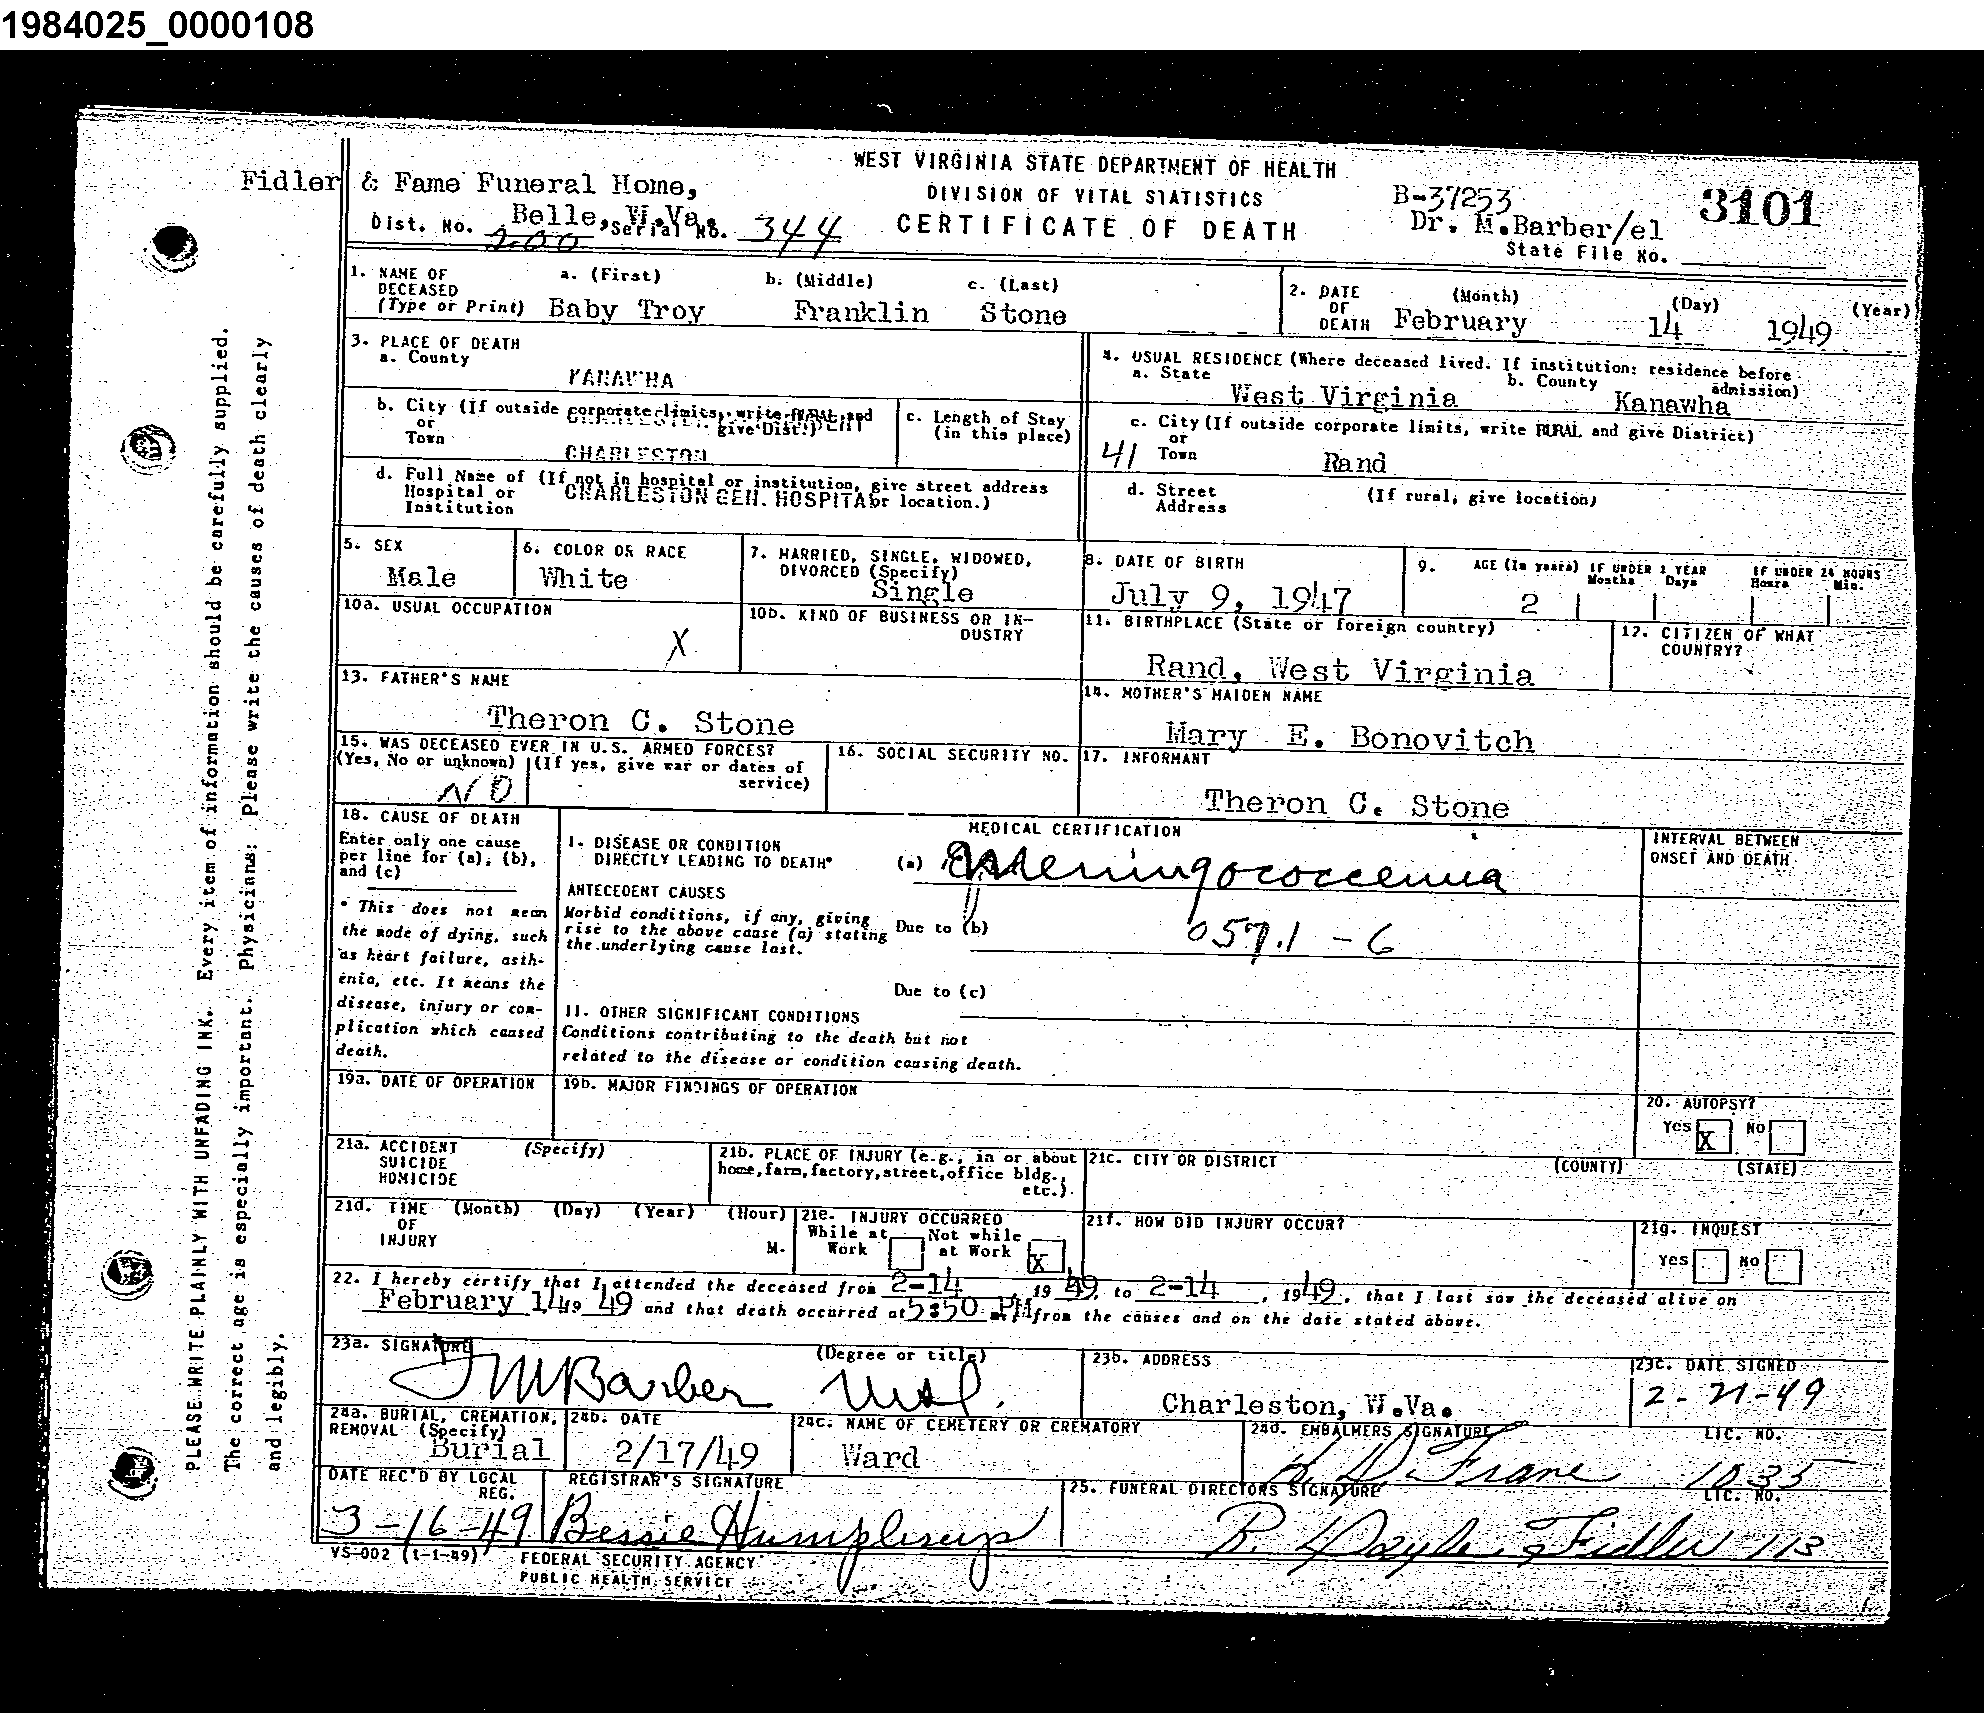 1984025_0000108
Fidler & Fame Funeral Home,
Belle, W.Va.
WEST VIRGINIA STATE DEPARTMENT OF HEALTH
DIVISION OF VITAL STATISTICS
CERTIFICATE OF DEATH
B-37253
Dr. M.Barber/el
3101
State File No.
Dist. No. 200 Serial No. 344
1. NAME OF DECEASED (Type or Print)
a. (First) b. (Middle) c. (Last)
Baby Troy Franklin Stone
2. DATE OF DEATH (Month) (Day) (Year)
February 14 1949
3. PLACE OF DEATH
a. County
KANAWHA
4. USUAL RESIDENCE (Where deceased lived. If institution: residence before admission)
a. State b. County
West Virginia Kanawha
b. City (If outside corporate limits, write RURAL and give Dist.)
or
Town
CHARLESTON
c. Length of Stay
(in this place)
c. City (If outside corporate limits, write RURAL and give District)
or
41 Town Rand
d. Full Name of (If not in hospital or institution, give street address or location.)
Hospital or
Institution
CHARLESTON GEN. HOSPITAL
d. Street
Address
(If rural, give location)
5. SEX
Male
6. COLOR OR RACE
White
7. MARRIED, SINGLE, WIDOWED,
DIVORCED (Specify)
Single
8. DATE OF BIRTH
July 9, 1947
9. AGE (In years) IF UNDER 1 YEAR IF UNDER 24 HOURS
Months Days Hours Min.
2
10a. USUAL OCCUPATION
X
10b. KIND OF BUSINESS OR IN-
DUSTRY
11. BIRTHPLACE (State or foreign country)
Rand, West Virginia
12. CITIZEN OF WHAT
COUNTRY?
13. FATHER'S NAME
Theron C. Stone
14. MOTHER'S MAIDEN NAME
Mary E. Bonovitch
15. WAS DECEASED EVER IN U.S. ARMED FORCES?
(Yes, No or unknown) (If yes, give war or dates of
service)
NO
16. SOCIAL SECURITY NO.
17. INFORMANT
Theron C. Stone
18. CAUSE OF DEATH
Enter only one cause
per line for (a), (b),
and (c)
* This does not mean
the mode of dying, such
as heart failure, asth-
enia, etc. It means the
disease, injury or com-
plication which caused
death.
MEDICAL CERTIFICATION
I. DISEASE OR CONDITION
DIRECTLY LEADING TO DEATH*
(a) Meningococcemia
ANTECEDENT CAUSES
Morbid conditions, if any, giving
rise to the above cause (a) stating
the underlying cause last.
Due to (b)
057.1 - 6
Due to (c)
II. OTHER SIGNIFICANT CONDITIONS
Conditions contributing to the death but not
related to the disease or condition causing death.
INTERVAL BETWEEN
ONSET AND DEATH
19a. DATE OF OPERATION
19b. MAJOR FINDINGS OF OPERATION
20. AUTOPSY?
Yes X No
21a. ACCIDENT (Specify)
SUICIDE
HOMICIDE
21b. PLACE OF INJURY (e.g., in or about
home, farm, factory, street, office bldg.,
etc.)
21c. CITY OR DISTRICT (COUNTY) (STATE)
21d. TIME (Month) (Day) (Year) (Hour)
OF
INJURY M.
21e. INJURY OCCURRED
While at Work Not while at Work X
21f. HOW DID INJURY OCCUR?
21g. INQUEST
Yes No
22. I hereby certify that I attended the deceased from 2-14, 19 49, to 2-14, 1949, that I last saw the deceased alive on
February 14, 19 49 and that death occurred at 5:50 PM from the causes and on the date stated above.
23a. SIGNATURE (Degree or title)
J M Barber M.D.
23b. ADDRESS
Charleston, W.Va.
23c. DATE SIGNED
2-21-49
24a. BURIAL, CREMATION,
REMOVAL (Specify)
Burial
24b. DATE
2/17/49
24c. NAME OF CEMETERY OR CREMATORY
Ward
24d. EMBALMERS SIGNATURE LIC. NO.
Frame 1035
DATE REC'D BY LOCAL
REG.
3-16-49
REGISTRAR'S SIGNATURE
Bessie Humphreys
25. FUNERAL DIRECTORS SIGNATURE LIC. NO.
Fidler 113
VS-002 (1-1-49)
FEDERAL SECURITY AGENCY
PUBLIC HEALTH SERVICE
PLEASE WRITE PLAINLY WITH UNFADING INK. Every item of information should be carefully supplied.
The correct age is especially important. Physicians: Please write the causes of death clearly
and legibly.